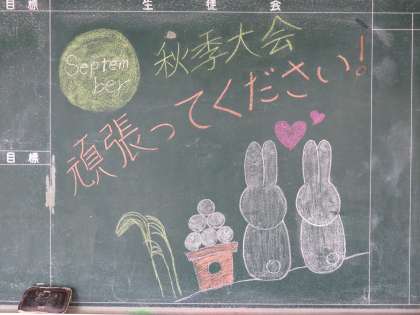 目標
生徒会
Septem
ber
秋季大会
頑張ってください!
目標